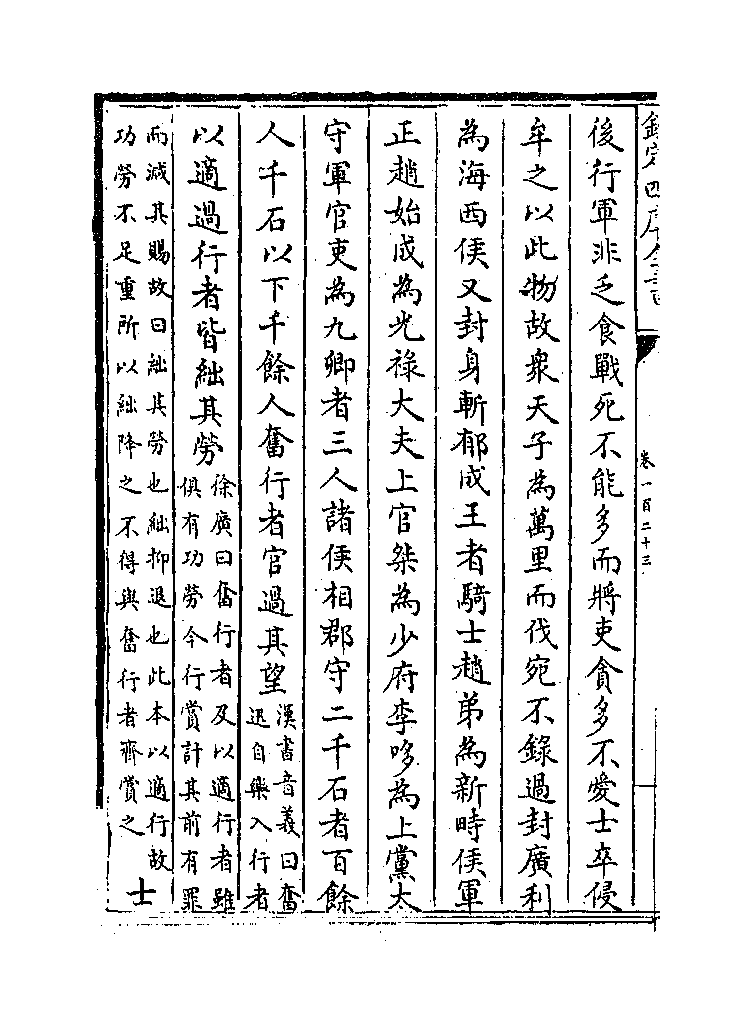 欽定四庫全書
卷一百二十三
後行軍非乏食戰死不能多而將吏貪多不愛士卒侵
牟之以此物故衆天子為萬里而伐宛不錄過封廣利
為海西侯又封身斬郁成王者騎士趙弟為新畤侯軍
正趙始成為光祿大夫上官桀為少府李哆為上黨太
守軍官吏為九卿者三人諸侯相郡守二千石者百餘
人千石以下千餘人奮行者官過其望
漢書音義曰奮
迅自樂入行者
以適過行者皆絀其勞
徐廣曰奮行者及以適行者雖
俱有功勞今行賞計其前有罪
而減其賜故曰絀其勞也絀抑退也此本以適行故
功勞不足重所以絀降之不得與奮行者齊賞之
士